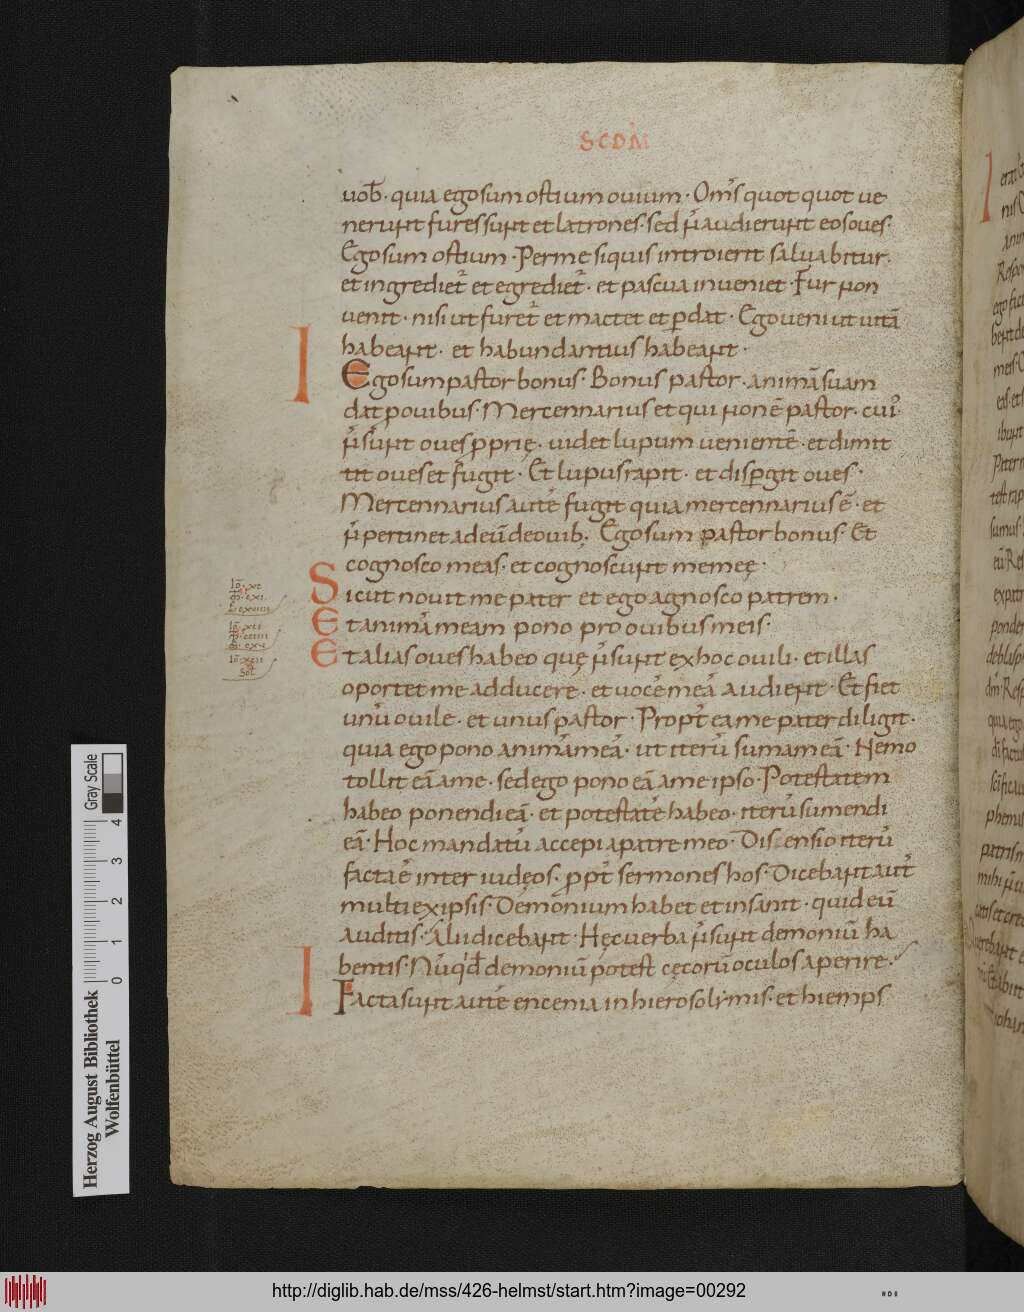 SCDM
uob̄· quia ego sum ostium ouium· Om̄s quot quot ue
nerunt fures sunt et latrones· sed n̄ audierunt eos oues·
Ego sum ostium· Per me siquis introierit saluabitur·
et ingrediet̄ et egrediet̄· et pascua inueniet· Fur non
uenit· nisi ut furet̄ et mactet et ꝑdat· Ego ueni ut uitā
habeant· et habundantius habeant·
I
Ego sum pastor bonus· Bonus pastor· animā suam
dat p ouibus· Mercennarius et qui non ē pastor· cui᷒·
n̄ sunt oues ꝓprię· uidet lupum uenientē· et dimit
tit oues et fugit· Et lupus rapit· et disꝑgit oues·
Mercennarius autē fugit quia mercennarius ē· et
n̄ pertinet ad eū de ouib;· Ego sum pastor bonus· Et
cognosco meas· et cognoscunt me meę·
Sicut nouit me pater et ego agnosco patrem·
Et animā meam pono pro ouibus meis·
Et alias oues habeo quę n̄ sunt ex hoc ouili· et illas
oportet me adducere· et uocē meā audient· Et fiet
unū ouile· et unus pastor· Propt̄ ea me pater diligit·
quia ego pono animā meā· ut iterū sumam eā· Nemo
tollit eā a me· sed ego pono eā a me ipso· Potestatem
habeo ponendi eā· et potestatē habeo· iterū sumendi
eā· Hoc mandatū accepi a patre meo· Discensio iterū
facta ē inter iudęos· ꝓpt̄ sermones hos· Dicebant aut̄
multi ex ipsis· Demonium habet et insanit· quid eū
auditis· Alii dicebant· Hęc uerba n̄ sunt demoniū ha
bentis· Nūqd̄ demoniū potest cęcorū oculos aperire·
I
Facta sunt autē encenia in hierosolymis· et hiemps
Herzog August Bibliothek
Wolfenbüttel
0 1 2 3 4
Gray Scale
http://diglib.hab.de/mss/426-helmst/start.htm?image=00292